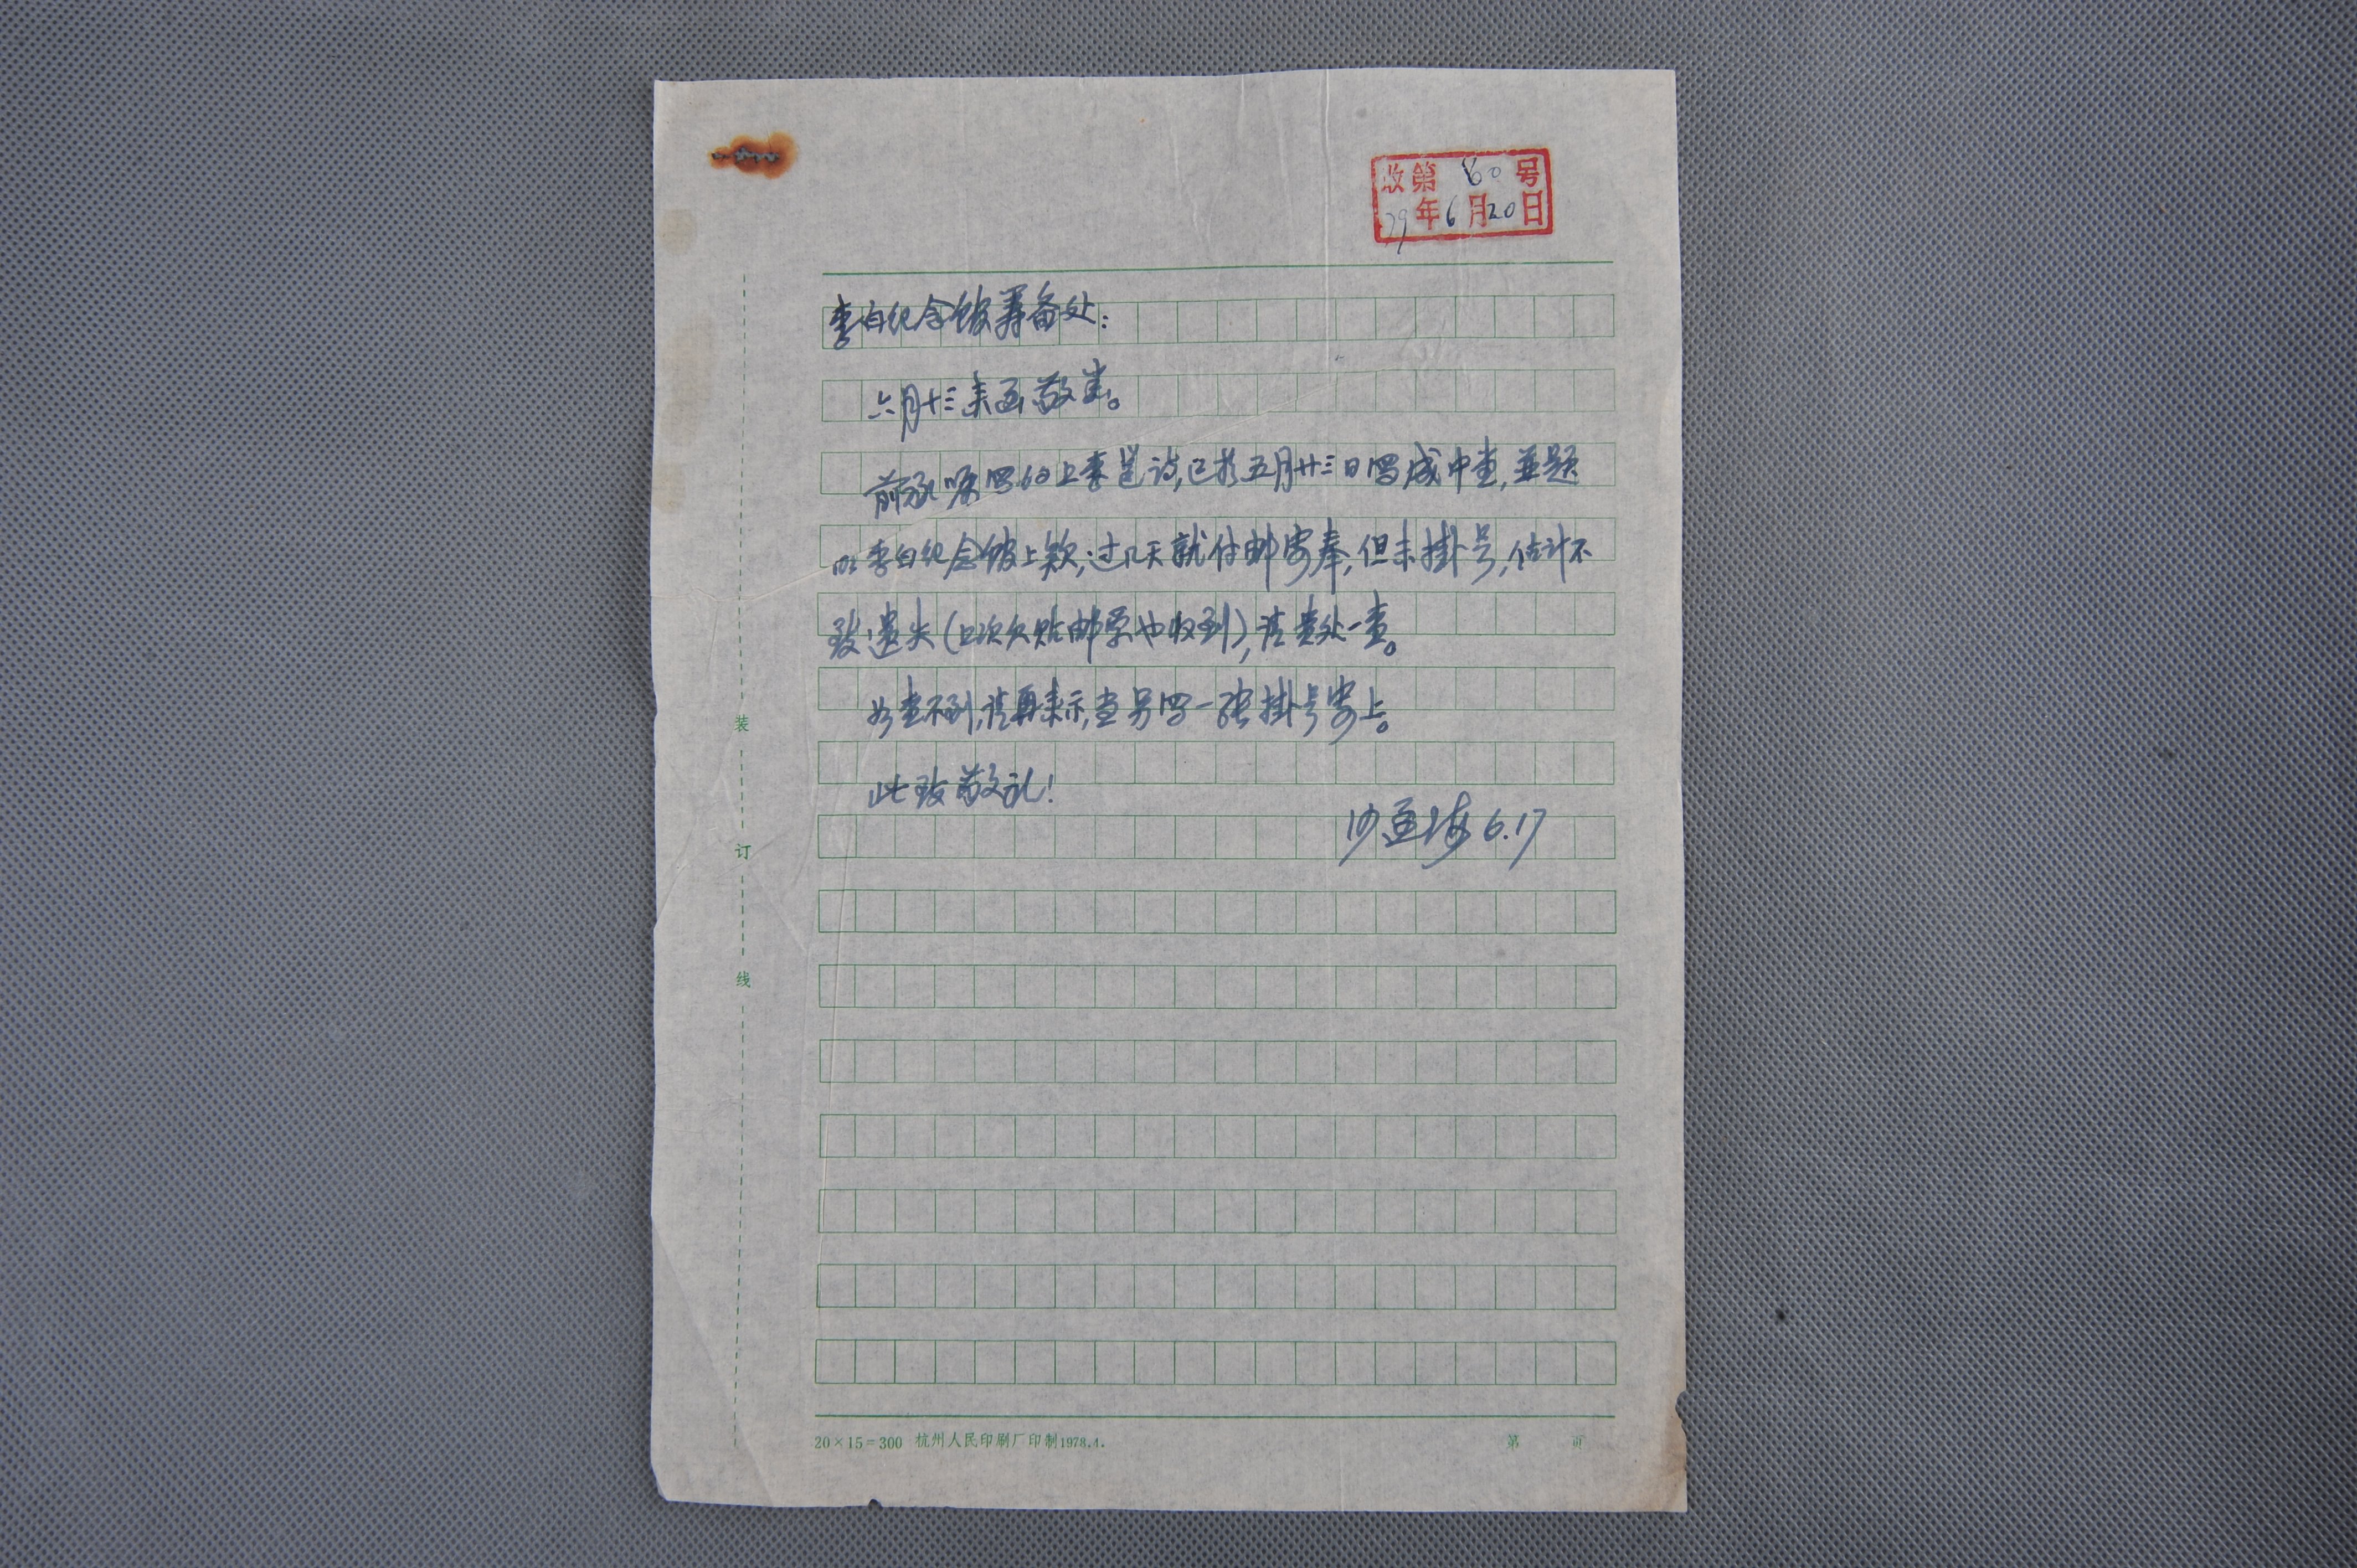 收第 80 号
79年6月20日
李白纪念馆筹备处:
六月十三来函敬悉。
前承嘱写的上李邕诗,已于五月廿三日写成中堂,并题
明李白纪念馆上款;过几天就付邮寄奉,但未掛号,估计不
致遗失(上次欠贴邮票也收到),请贵处一查。
如查不到,请再来示,当另写一张掛号寄上。
此致敬礼!
沙孟海 6.17
装
订
线
20×15=300 杭州人民印刷厂印制1978.4.
第 页